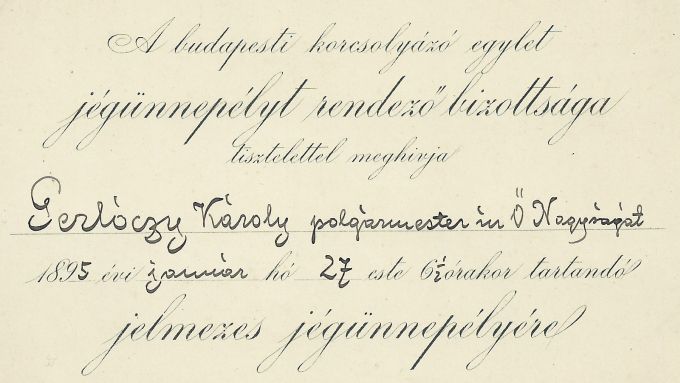 A budapesti korcsolyázó egylet
jégünnepélyt rendező bizottsága
tisztelettel meghivja
Gerlóczy Károly polgármester úr Ő Nagyságát
1895 évi január hó 27 este 6½ órakor tartandó
jelmezes jégünnepélyére